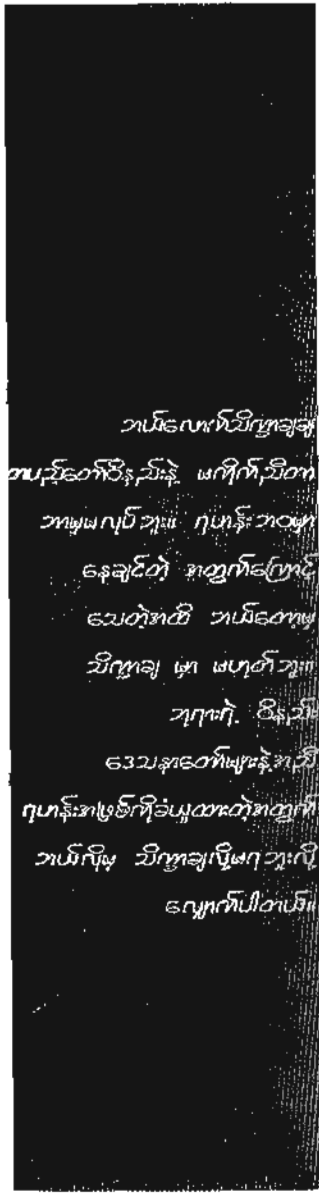 ဘယ်လောက်သိက္ခာချချ
တပည့်တော်ဝိနည်းနဲ့ မကိုက်ညီတာ
ဘာမှမလုပ်ဘူး။ ရဟန်းဘဝမှာ
နေချင်တဲ့ အတွက်ကြောင့်
သေတဲ့အထိ ဘယ်တော့မှ
သိက္ခာချ မှာ မဟုတ်ဘူး။
ဘုရားရဲ့ ဝိနည်း
ဒေသနာတော်များနဲ့အညီ
ရဟန်းအဖြစ်ကိုခံယူထားတဲ့အတွက်
ဘယ်လိုမှ သိက္ခာချလို့မရဘူးလို့
လျှောက်ပါတယ်။